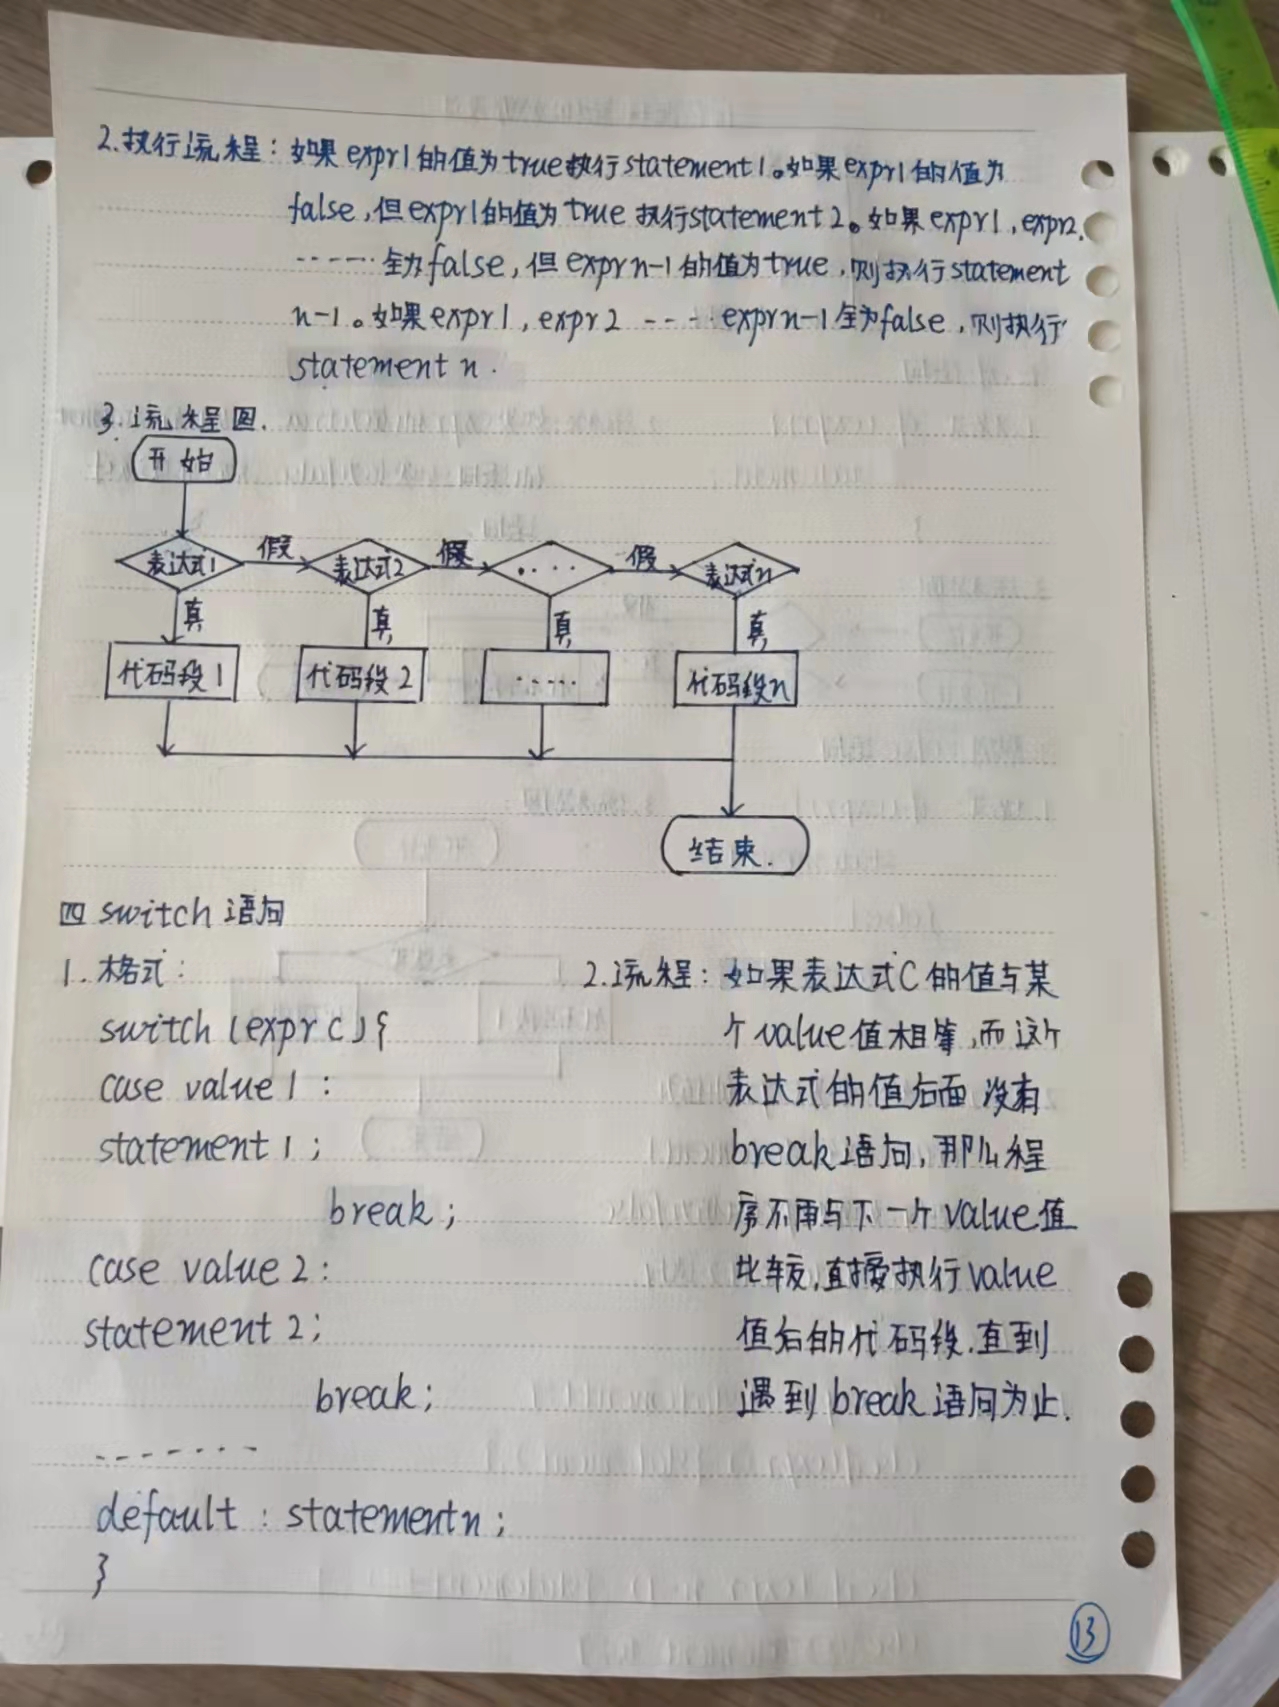 2.执行流程：如果expr1的值为true执行statement1。如果expr1的值为
false，但expr1的值为true执行statement2。如果expr1，expr2，
……全为false，但exprn-1的值为true，则执行statement
n-1。如果expr1，expr2……exprn-1全为false，则执行
statement n.
3.流程图.
开始
表达式1 假 表达式2 假 .... 假 表达式n
真 真 真 真
代码段1 代码段2 ..... 代码段n
结束.
四 switch语句
1.格式：
switch(expr c){
case value1:
statement1;
break;
case value2:
statement2;
break;
-------
default: statementn;
}
2.流程：如果表达式C的值与某
个value值相等，而这个
表达式的值后面没有
break语句，那么程
序不再与下一个value值
比较，直接执行value
值后的代码段.直到
遇到break语句为止.
13